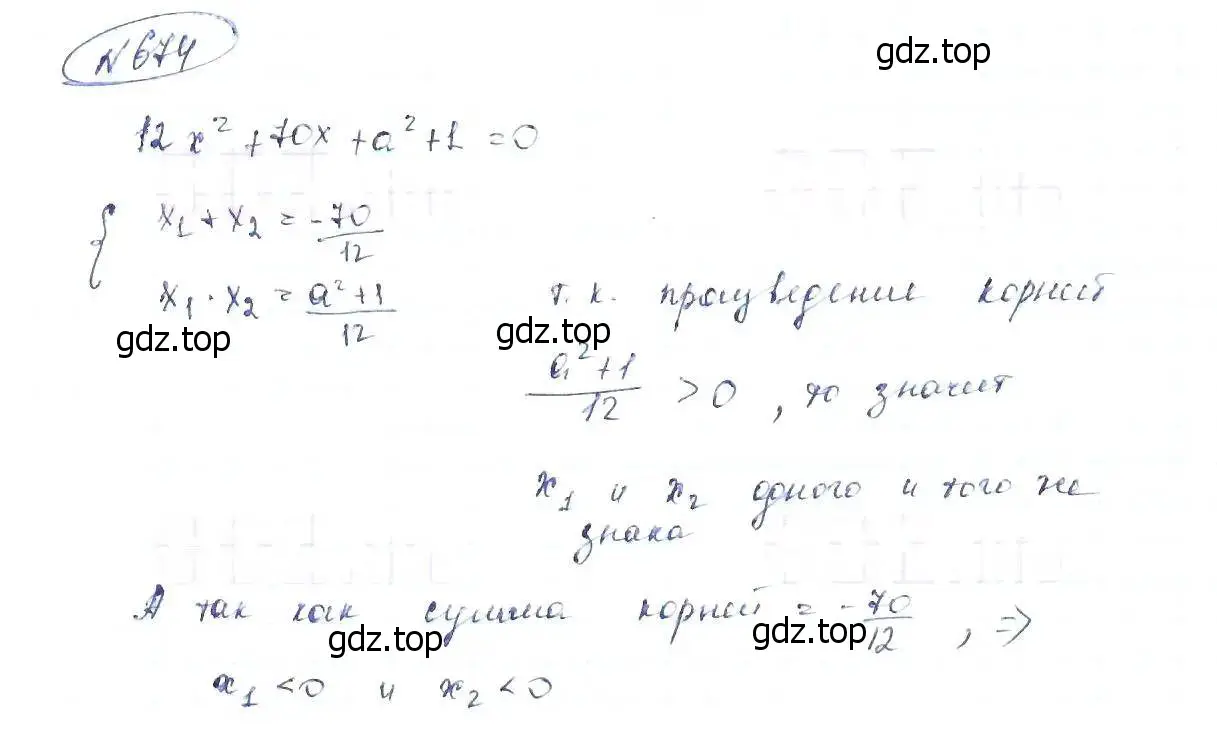 № 674
gdz.top
12x² + 70x + a² + 1 = 0
{ x₁ + x₂ = -70/12
x₁ · x₂ = (a² + 1)/12
т. к. произведение корней
gdz.top
gdz.top
(a² + 1)/12 > 0, то значит
x₁ и x₂ одного и того же
знака
А так как сумма корней = -70/12, ⇒
gdz.top
gdz.top
x₁ < 0 и x₂ < 0